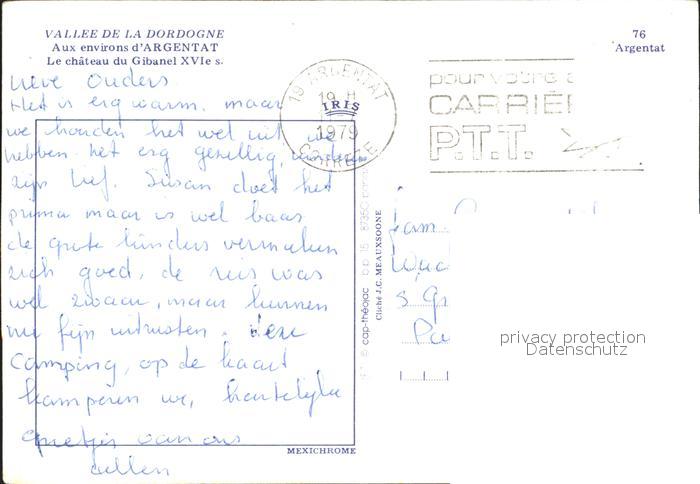 VALLEE DE LA DORDOGNE
Aux environs d'ARGENTAT
Le château du Gibanel XVIe s.
76
Argentat
19 ARGENTAT
19 H
IRIS
1979
CORREZE
pour votre
CARRIÈ
P.T.T.
Lieve Ouders
Het is erg warm. maar
we houden het wel uit we
hebben het erg gezellig, kinderen
zijn lief. Susan doet het
prima maar is wel baas
de grote kinders vermaken
zich goed, de reis was
wel zwaar, maar kunnen
nu fijn uitrusten. deze
Camping, op de kaart
kamperen we, hartelijke
groetjes van ons
allen
cap-théojac
Cliché J.C. MEAUXSOONE
MEXICHROME
fam.
privacy protection
Datenschutz